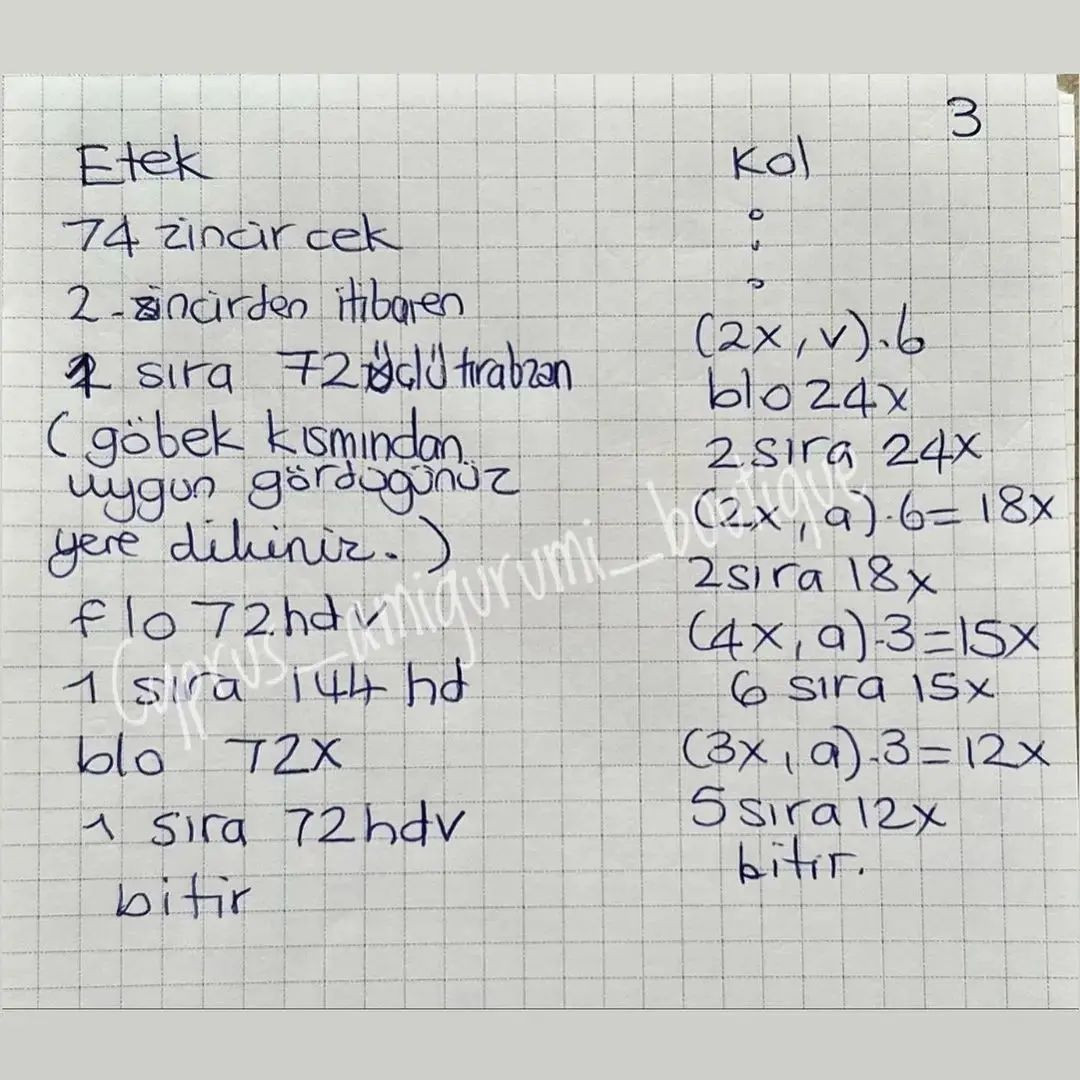 3
Etek
74 zincir cek
2. zincirden itibaren
1 sıra 72 üçlü tırabzan
(göbek kısmından
uygun gördüğünüz
yere dikiniz.)
flo 72 hdv
1 sıra 144 hd
blo 72x
1 sıra 72 hdv
bitir
Kol
(2x, v).6
blo 24x
2 sıra 24x
(2x, a).6 = 18x
2 sıra 18x
(4x, a).3 = 15x
6 sıra 15x
(3x, a).3 = 12x
5 sıra 12x
bitir.
Cyprus_amigurumi_boutique